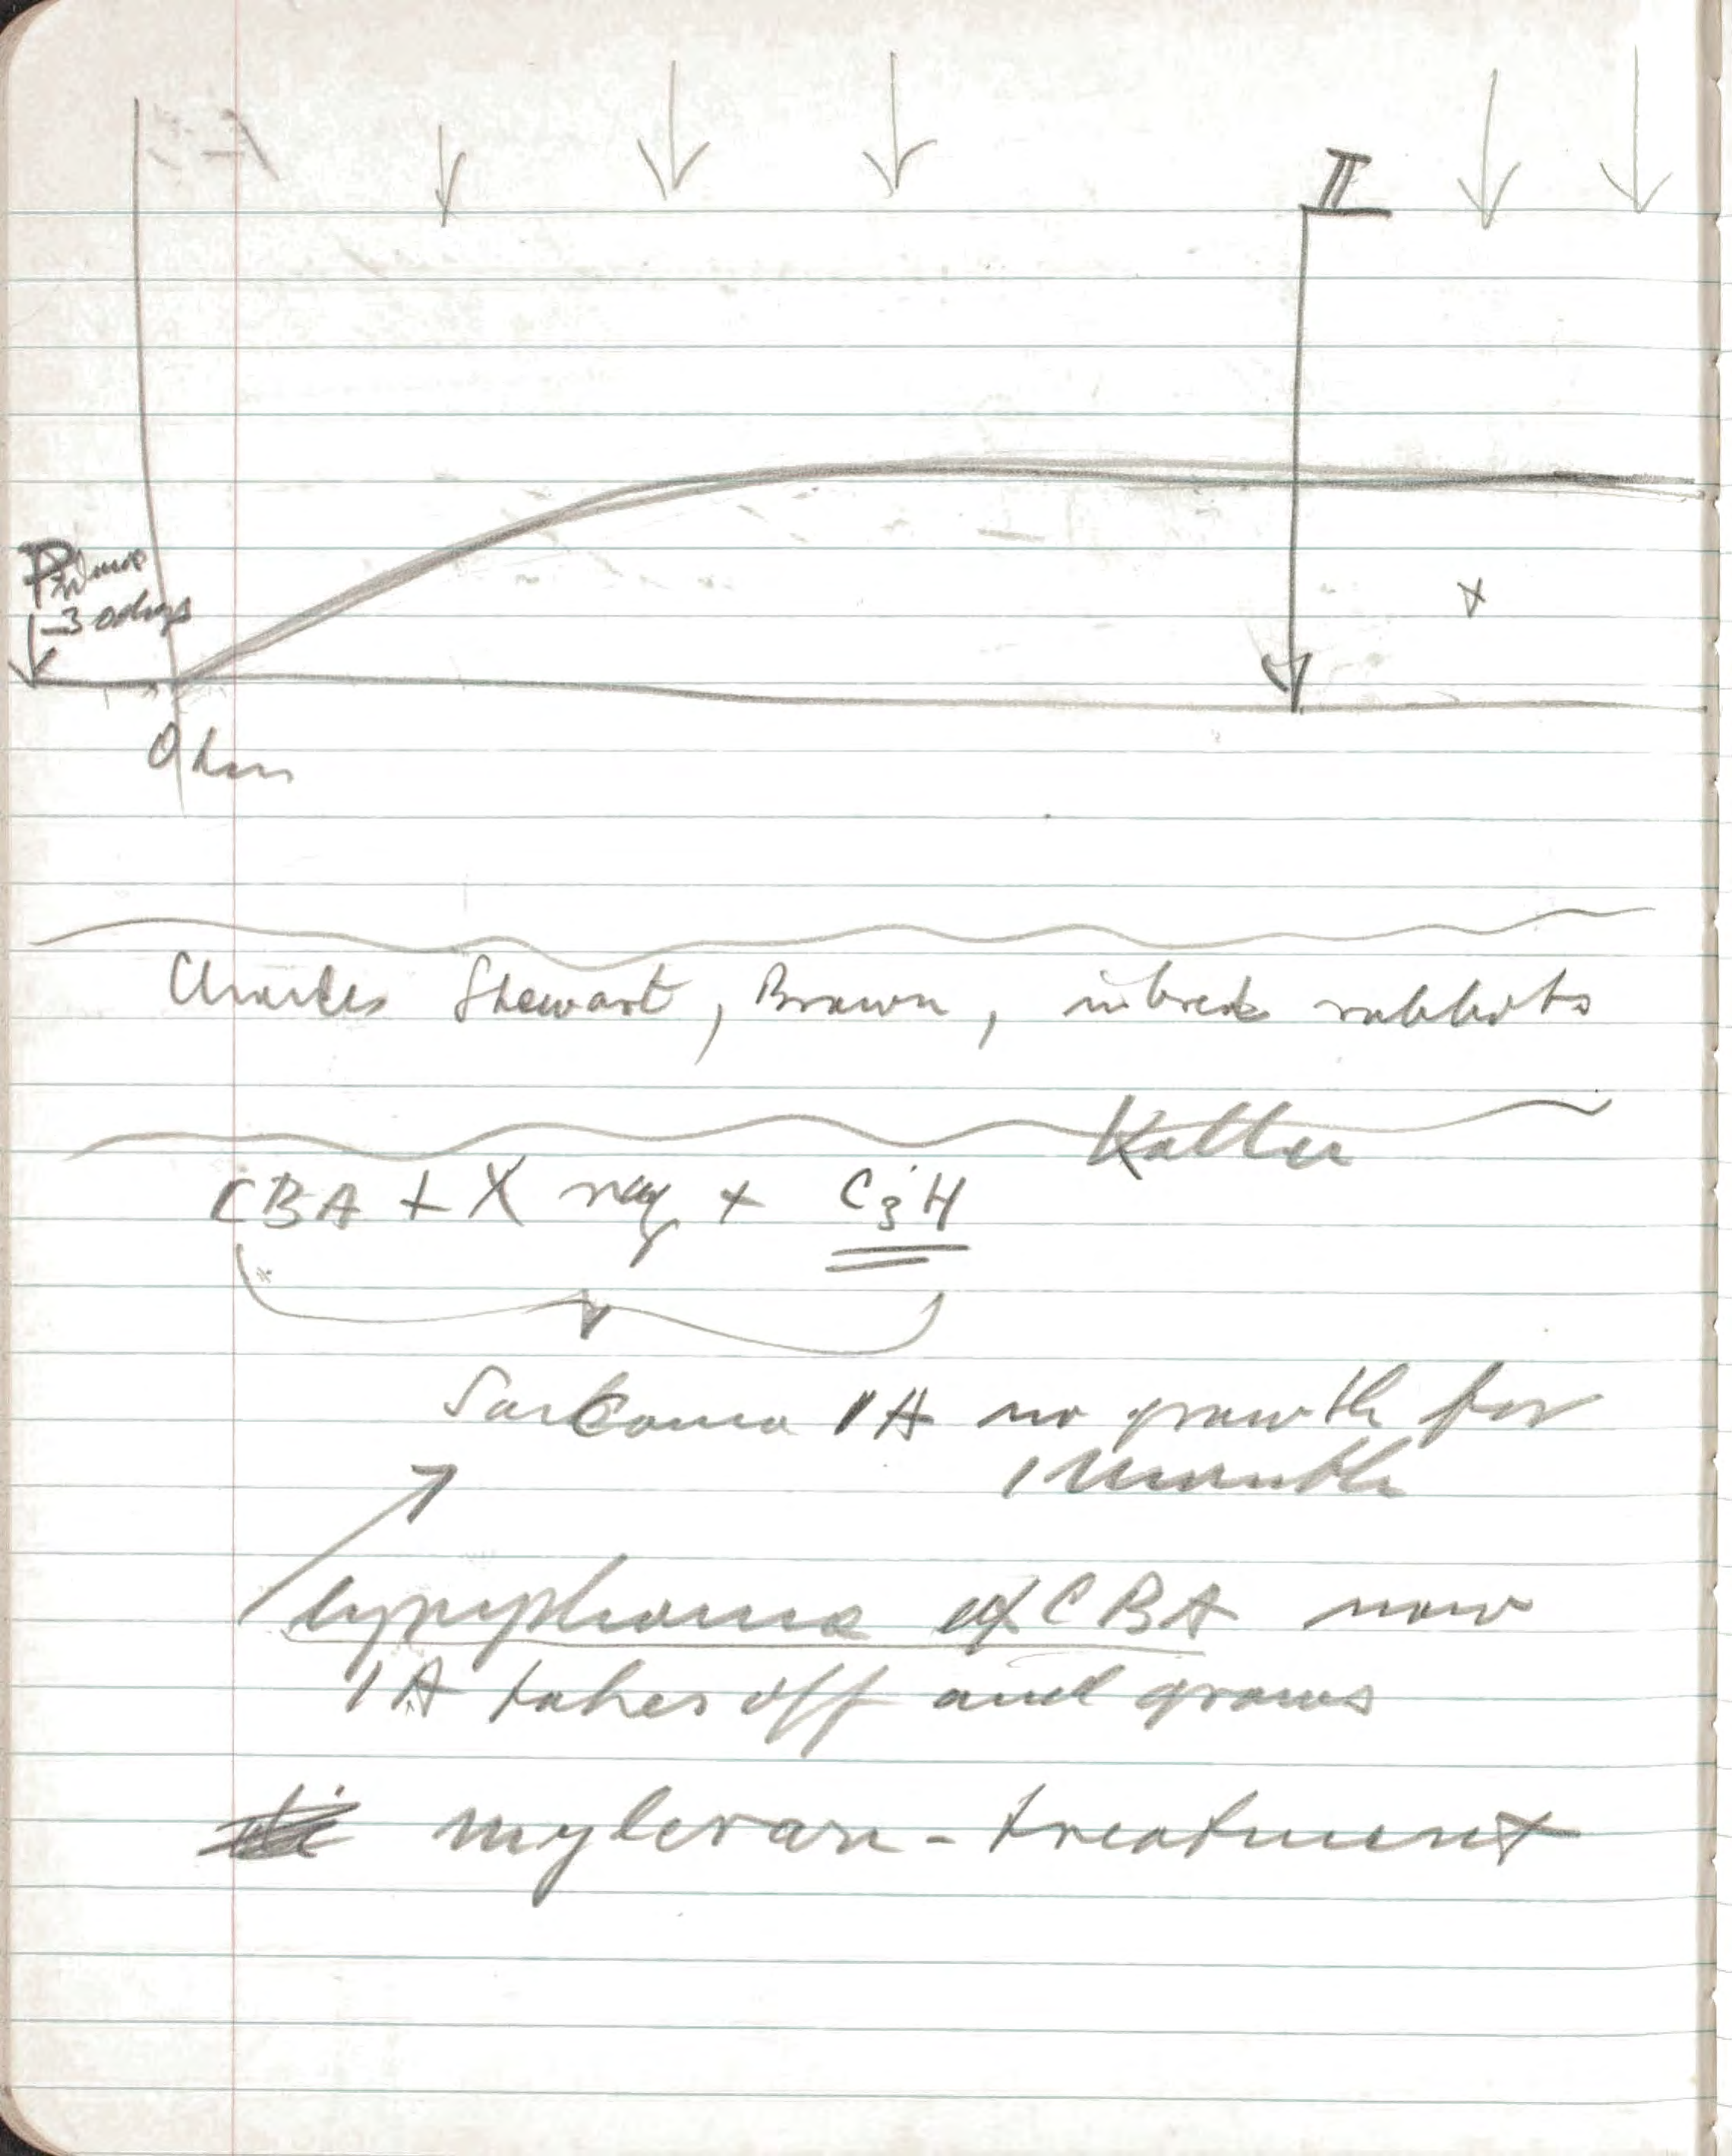 II
-30 days
0 hrs
Charles Stewart, Brown, inbred rabbits
CBA + X ray + C3H
Sarcoma 1A no growth for
1 month
lymphoma of CBA now
1A takes off and grows
myleran - treatment